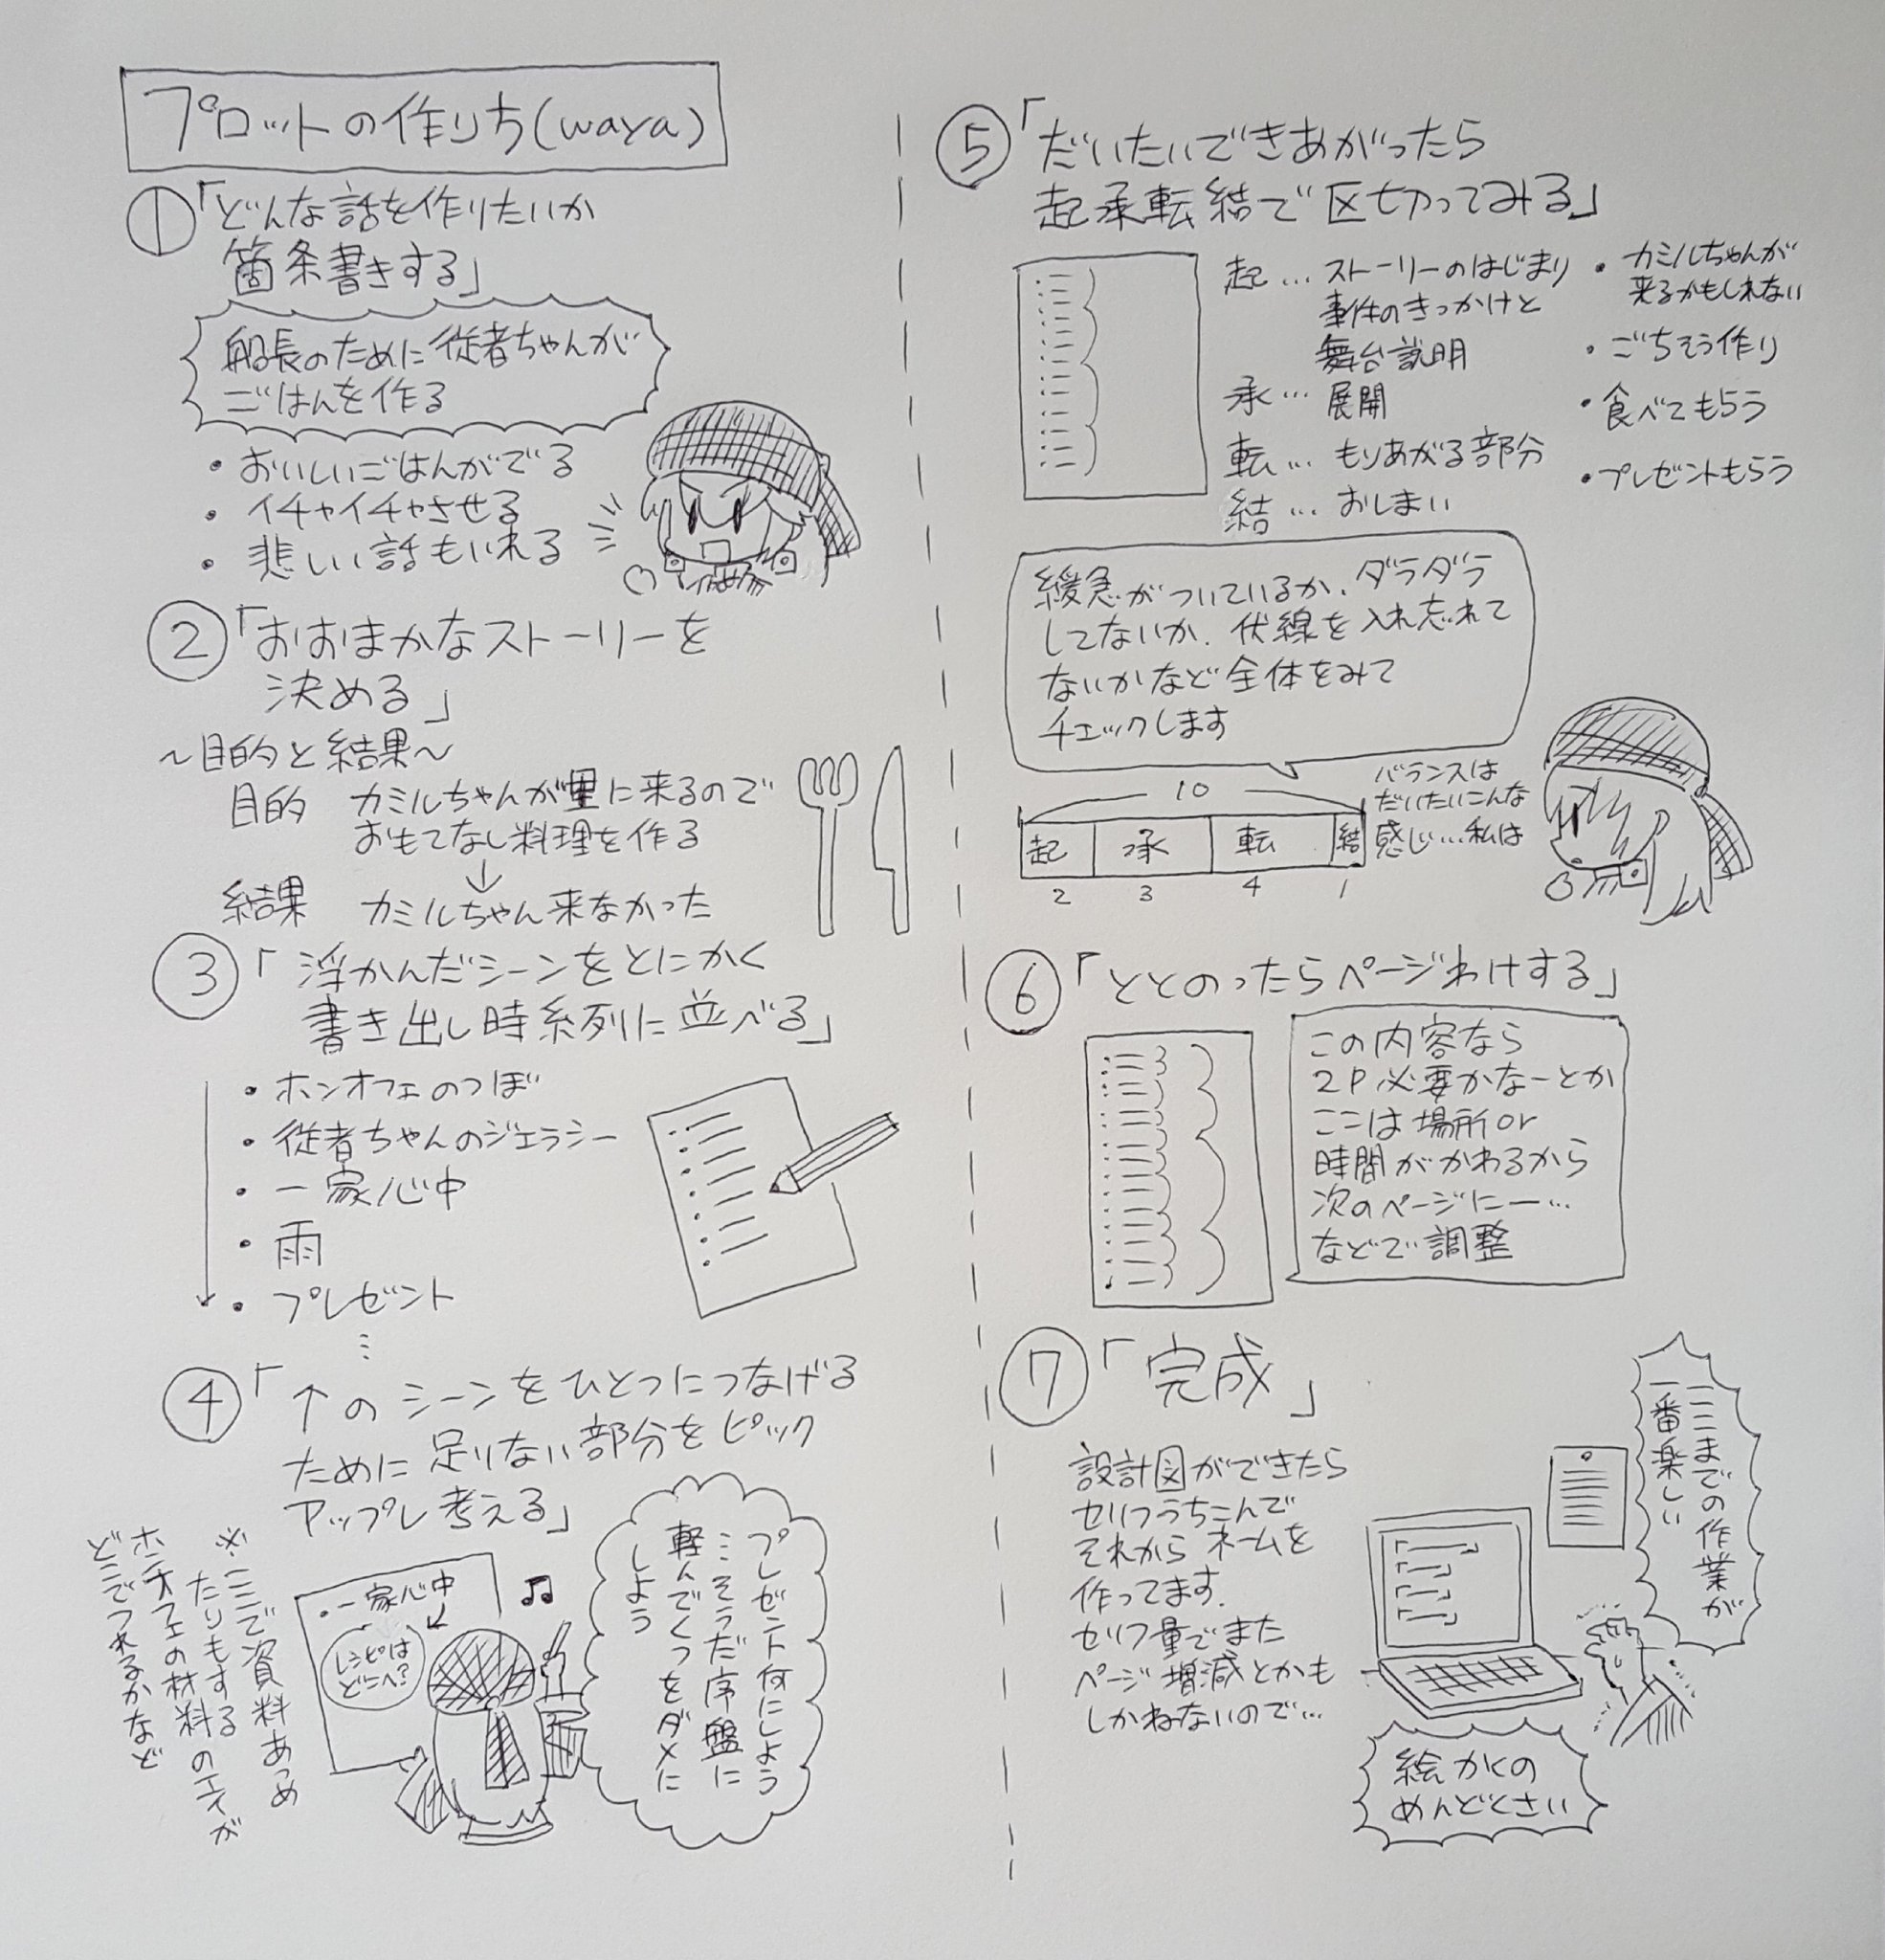 プロットの作りち(waya)
①「どんな話を作りたいか
箇条書きする」
船長のために従者ちゃんが
ごはんを作る
・おいしいごはんがでる
・イチャイチャさせる
・悲しい話もいれる
②「おおまかなストーリーを
決める」
～目的と結果～
目的 カミルちゃんが里に来るので
おもてなし料理を作る
↓
結果 カミルちゃん来なかった
③「浮かんだシーンをとにかく
書き出し時系列に並べる」
・ホンオフェのつぼ
・従者ちゃんのジェラシー
・一家心中
・雨
・プレゼント
⋮
④「↑のシーンをひとつにつなげる
ために足りない部分をピック
アップし考える」
※ここで資料あつめ
たりもする
ホンオフェの材料のエイが
どこでつれるかなど
・一家心中
レシピは
どこへ?
プレゼント何にしよう
…そうだ序盤に
軽んでくつをダメに
しよう
⑤「だいたいできあがったら
起承転結で区切ってみる」
起…ストーリーのはじまり
事件のきっかけと
舞台説明
承…展開
転…もりあがる部分
結…おしまい
・カミルちゃんが
来るかもしれない
・ごちそう作り
・食べてもらう
・プレゼントもらう
緩急がついているか、ダラダラ
してないか、伏線を入れ忘れて
ないかなど全体をみて
チェックします
10
起 承 転 結
2 3 4 1
バランスは
だいたいこんな
感じ…私は
⑥「ととのったらページわけする」
この内容なら
2P必要かなーとか
ここは場所or
時間がかわるから
次のページにー…
などで調整
⑦「完成」
設計図ができたら
セリフうちこんで
それからネームを
作ってます.
セリフ量でまた
ページ増減とかも
しかねないので…
ここまでの作業が
一番楽しい
絵かくの
めんどくさい